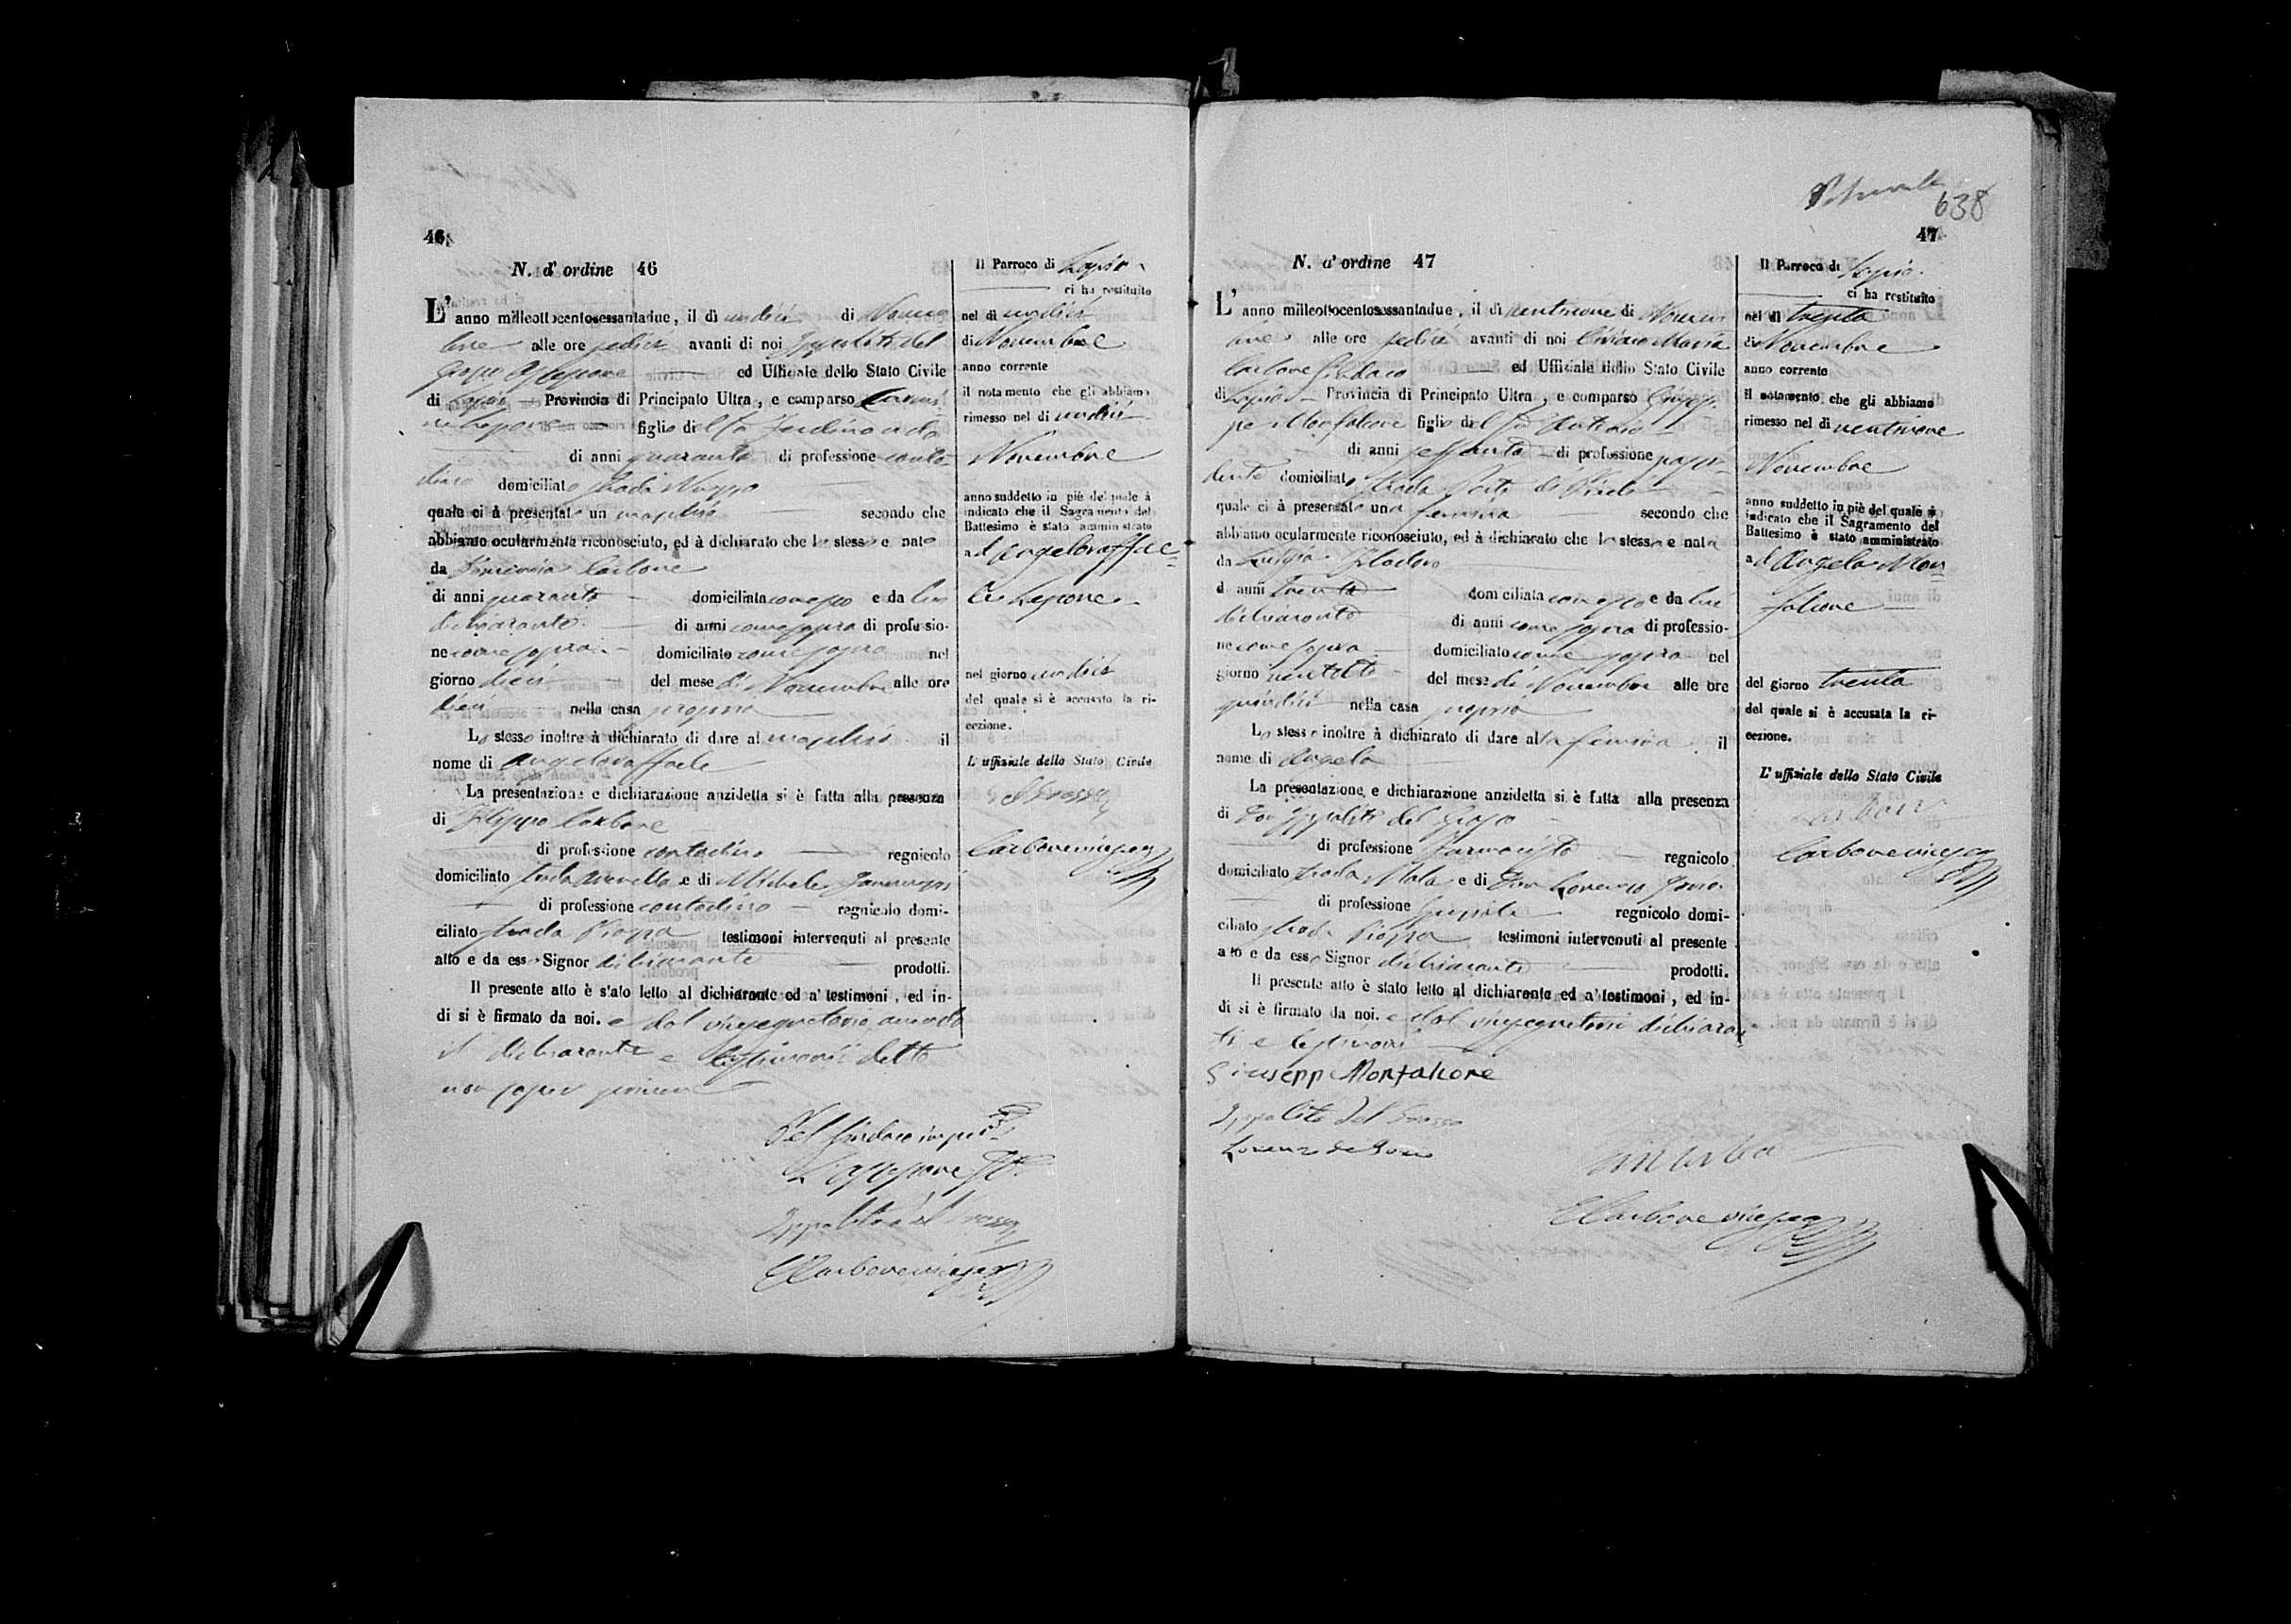 46
N. d'ordine 46
L'anno milleottocentosessantadue, il dì undici di Novem
bre alle ore sedici avanti di noi Ippolito del
Grosso ed Uffiziale dello Stato Civile
di Lapio Provincia di Principato Ultra, e comparso
figlio del fu Ferdinando
di anni quaranta di professione conta
dino domiciliato strada
quale ci à presentato un maschio secondo che
abbiamo ocularmente riconosciuto, ed à dichiarato che lo stesso e nato
da Carbone
di anni quaranta domiciliata e da lui
dichiarante di anni come sopra di professio-
ne come sopra domiciliato come sopra nel
giorno dieci del mese di Novembre alle ore
dieci nella casa propria
Lo stesso inoltre à dichiarato di dare al maschio il
nome di Angeloraffaele
La presentazione e dichiarazione anzidetta si è fatta alla presenza
di Filippo Carbone
di professione contadino regnicolo
domiciliato strada e di Michele
di professione contadino regnicolo domi-
ciliato strada testimoni intervenuti al presente
atto e da esso Signor dichiarante prodotti.
Il presente atto è stato letto al dichiarante ed a' testimoni, ed in-
di si è firmato da noi. e dal vicesegretario avendo
il dichiarante e testimonii detto
non saper scrivere
Pel Sindaco
Ippolito del Grosso
Carbone viceseg
Il Parroco di Lapio
ci ha restituito
nel dì undici
di Novembre
anno corrente
il notamento che gli abbiamo
rimesso nel dì undici
Novembre
anno suddetto in piè del quale à
indicato che il Sagramento del
Battesimo è stato amministrato
ad Angeloraffae-
le
nel giorno undici
del quale si è accusato la ri-
cezione.
L'uffiziale dello Stato Civile
del Grosso
Carbone viceseg
638
47
N. d'ordine 47
L'anno milleottocentosessantadue, il dì ventinove di Novem
bre alle ore sedici avanti di noi Maria
Carbone Sindaco ed Uffiziale dello Stato Civile
di Lapio Provincia di Principato Ultra, e comparso Giusep-
pe Monfalcone figlio del fu Antonio
di anni sessanta di professione possi-
dente domiciliato strada
quale ci à presentato una femina secondo che
abbiamo ocularmente riconosciuto, ed à dichiarato che lo stesso e nata
da Luigia
di anni trenta domiciliata e da lui
dichiarante di anni come sopra di professio-
ne come sopra domiciliato come sopra nel
giorno ventotto del mese di Novembre alle ore
quindici nella casa propria
Lo stesso inoltre à dichiarato di dare alla femina il
nome di Angela
La presentazione e dichiarazione anzidetta si è fatta alla presenza
di Don Ippolito del Grosso
di professione Farmacista regnicolo
domiciliato strada e di Don Lorenzo
di professione regnicolo domi-
ciliato strada testimoni intervenuti al presente
atto e da esso Signor dichiarante prodotti.
Il presente atto è stato letto al dichiarante ed a' testimoni, ed in-
di si è firmato da noi. e dal dichiaran
ti e testimoni
Giuseppe Monfalcone
Ippolito del Grosso
Lorenzo
Carbone viceseg
Il Parroco di Lapio
ci ha restituito
nel dì trenta
di Novembre
anno corrente
il notamento che gli abbiamo
rimesso nel dì ventinove
Novembre
anno suddetto in piè del quale à
indicato che il Sagramento del
Battesimo è stato amministrato
ad Angela Mon
falcone
del giorno trenta
del quale si è accusata la ri-
cezione.
L'uffiziale dello Stato Civile
Carbone viceseg